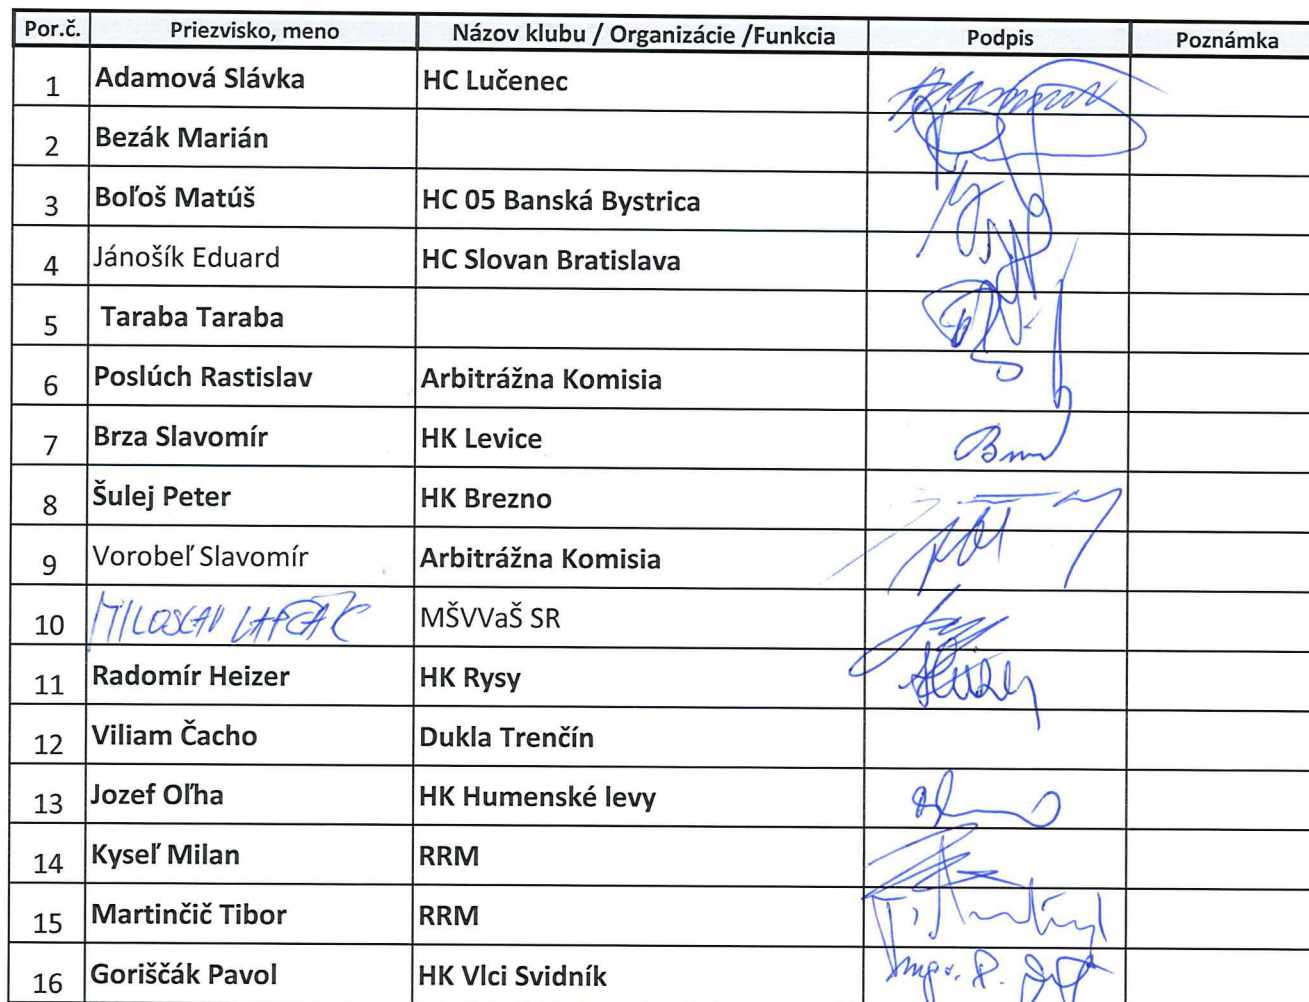 Por.č. Priezvisko, meno Názov klubu / Organizácie /Funkcia Podpis Poznámka
1 Adamová Slávka HC Lučenec
2 Bezák Marián
3 Boľoš Matúš HC 05 Banská Bystrica
4 Jánošík Eduard HC Slovan Bratislava
5 Taraba Taraba
6 Poslúch Rastislav Arbitrážna Komisia
7 Brza Slavomír HK Levice
8 Šulej Peter HK Brezno
9 Vorobeľ Slavomír Arbitrážna Komisia
10 MILOSLAV MŠVVaŠ SR
11 Radomír Heizer HK Rysy
12 Viliam Čacho Dukla Trenčín
13 Jozef Oľha HK Humenské levy
14 Kyseľ Milan RRM
15 Martinčič Tibor RRM
16 Goriščák Pavol HK Vlci Svidník